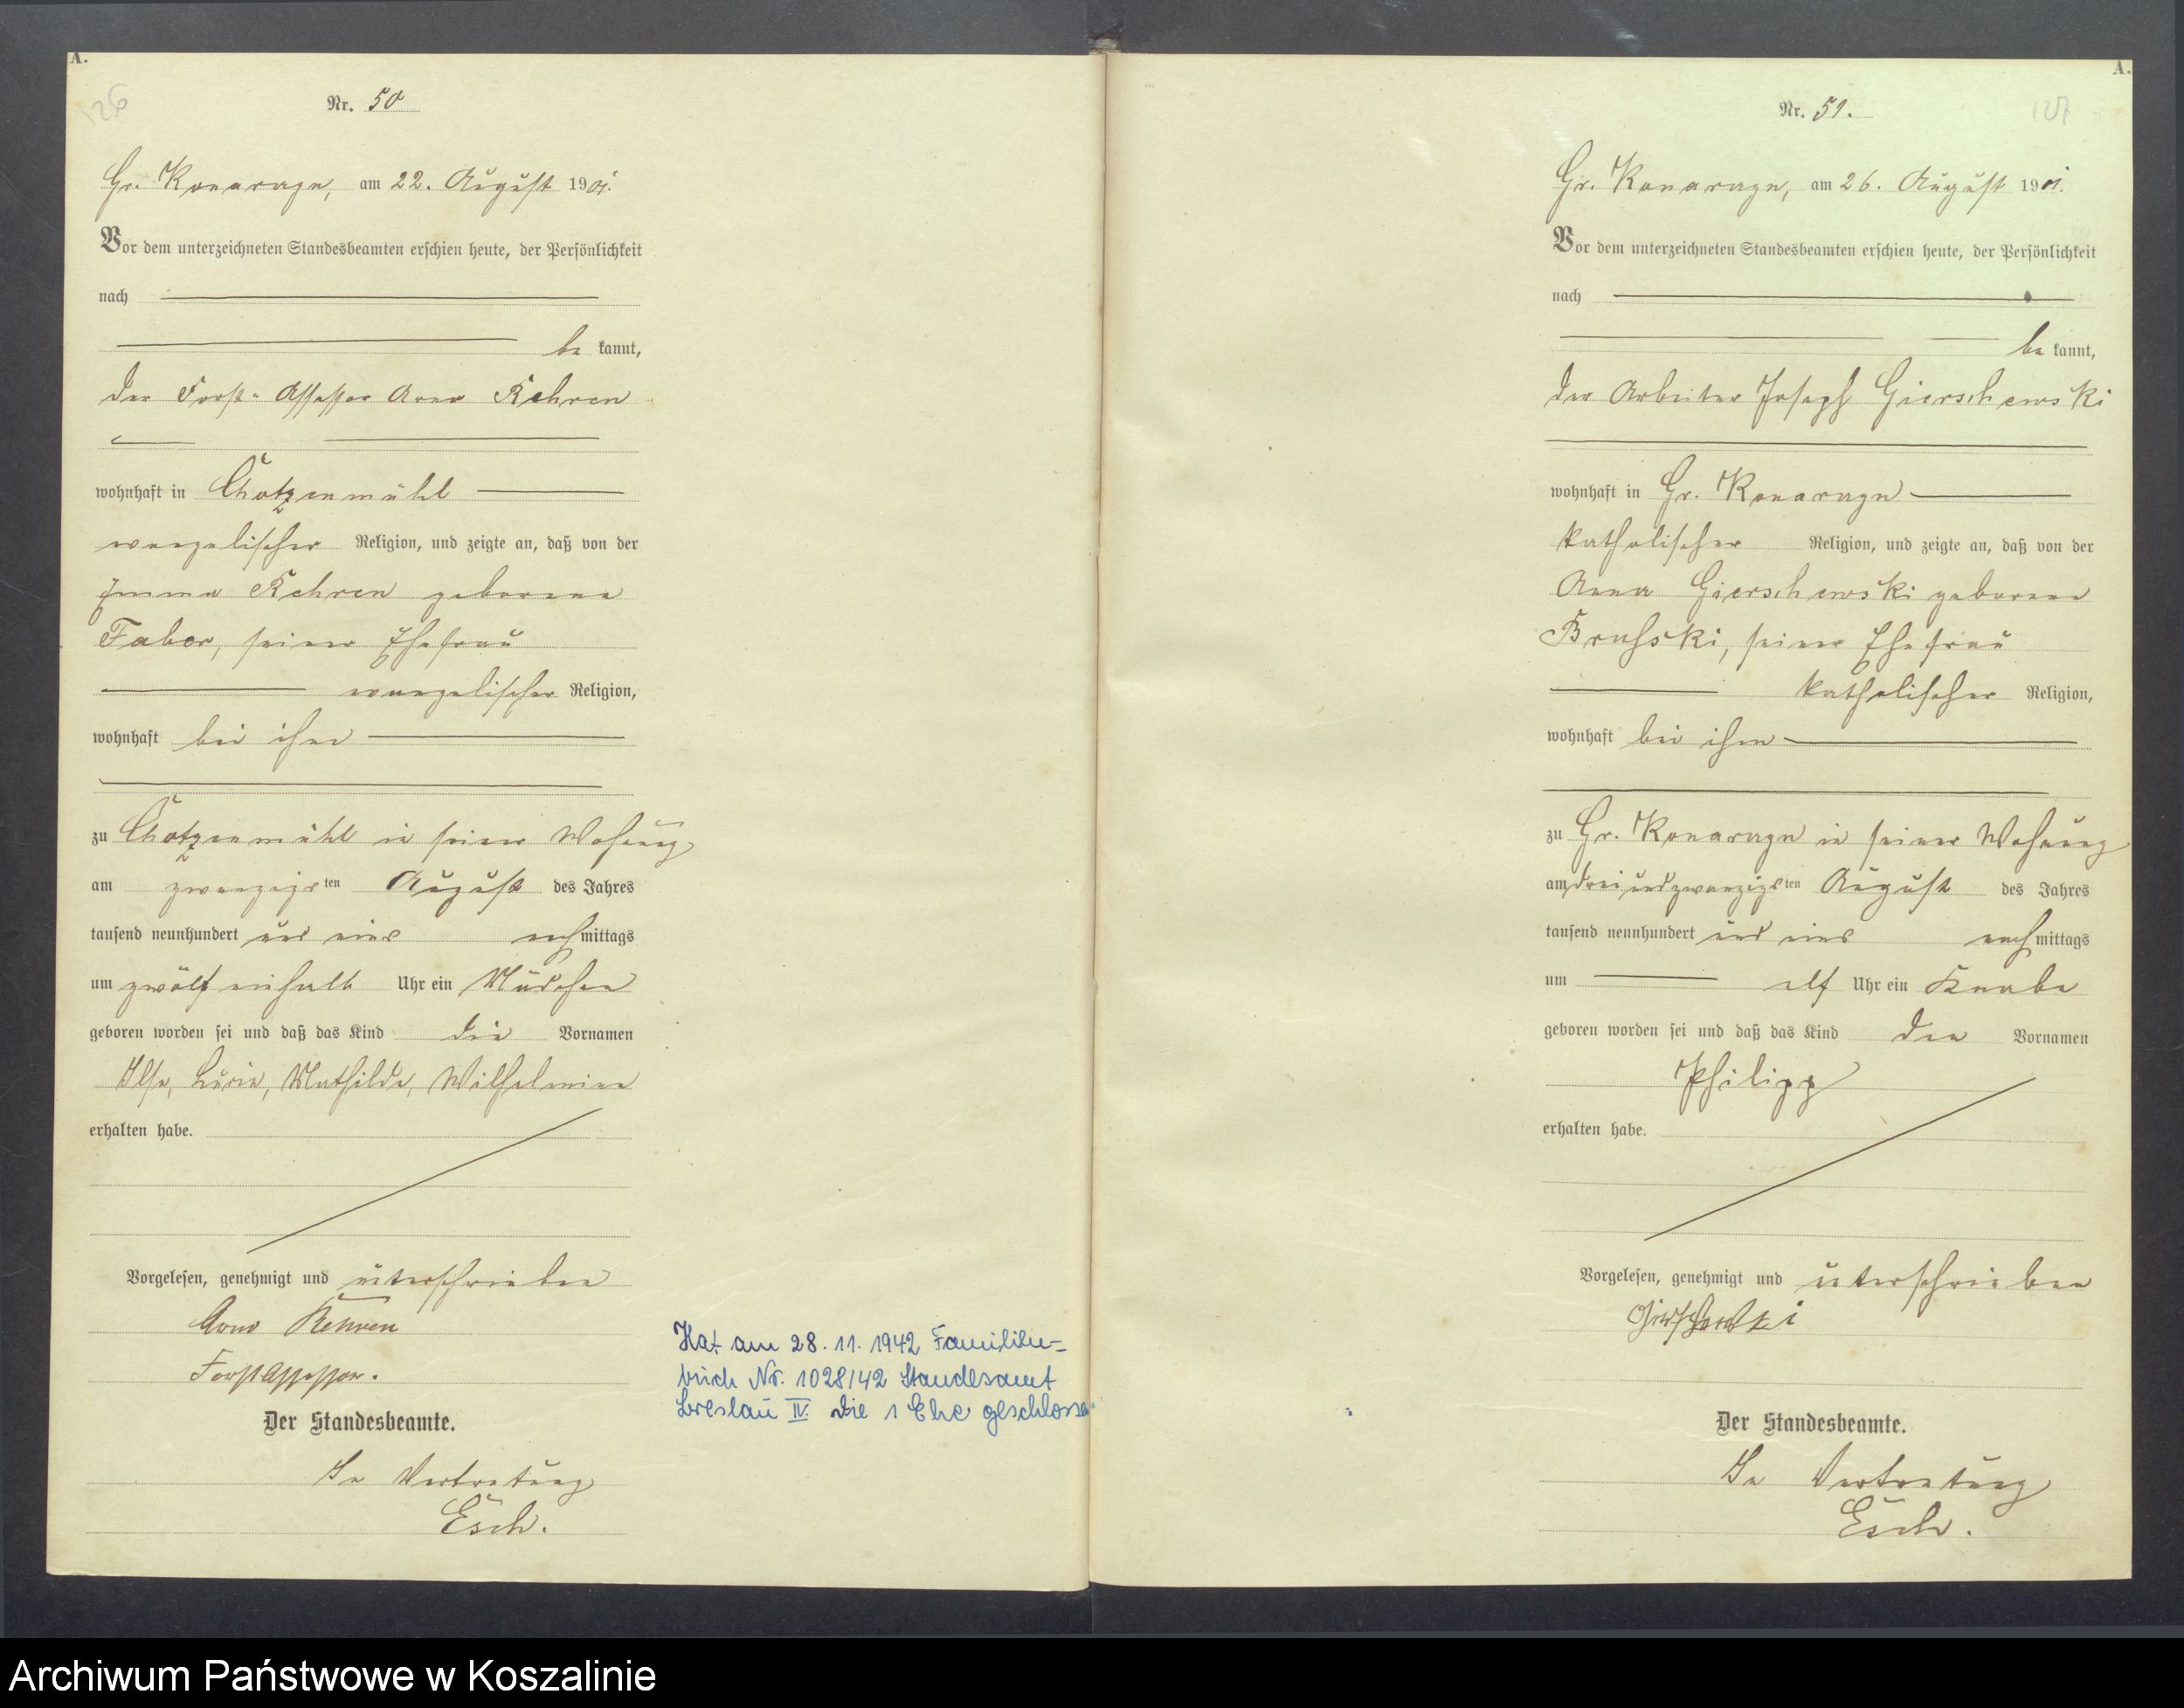 A.
126
Nr. 50
Gr. Konarzyn, am 22. August 1901.
Vor dem unterzeichneten Standesbeamten erschien heute, der Persönlichkeit
nach
be kannt,
der Forst-Assessor Arno Kehren
wohnhaft in Chotzenmühl
evangelischer Religion, und zeigte an, daß von der
Emma Kehren geborene
Faber, seiner Ehefrau
evangelischer Religion,
wohnhaft bei ihm
zu Chotzenmühl in seiner Wohnung
am zwanzigsten August des Jahres
tausend neunhundert und eins nachmittags
um zwölf einhalb Uhr ein Mädchen
geboren worden sei und daß das Kind die Vornamen
Ilse, Mathilde, Wilhelmine
erhalten habe.
Vorgelesen, genehmigt und unterschrieben
Arno Kehren
Forstassessor.
Der Standesbeamte.
In Vertretung
Esch.
Hat am 28. 11. 1942 Familien-
buch Nr. 1028/42 Standesamt
Breslau IV. die 1 Ehe geschlossen
A.
127
Nr. 51.
Gr. Konarzyn, am 26. August 1901.
Vor dem unterzeichneten Standesbeamten erschien heute, der Persönlichkeit
nach
be kannt,
der Arbeiter Joseph Gierschewski
wohnhaft in Gr. Konarzyn
katholischer Religion, und zeigte an, daß von der
Anna Gierschewski geborene
Bruhski, seiner Ehefrau
katholischer Religion,
wohnhaft bei ihm
zu Gr. Konarzyn in seiner Wohnung
am dreiundzwanzigsten August des Jahres
tausend neunhundert und eins nachmittags
um elf Uhr ein Knabe
geboren worden sei und daß das Kind den Vornamen
Philipp
erhalten habe.
Vorgelesen, genehmigt und unterschrieben
Gierschewski
Der Standesbeamte.
In Vertretung
Esch.
Archiwum Państwowe w Koszalinie